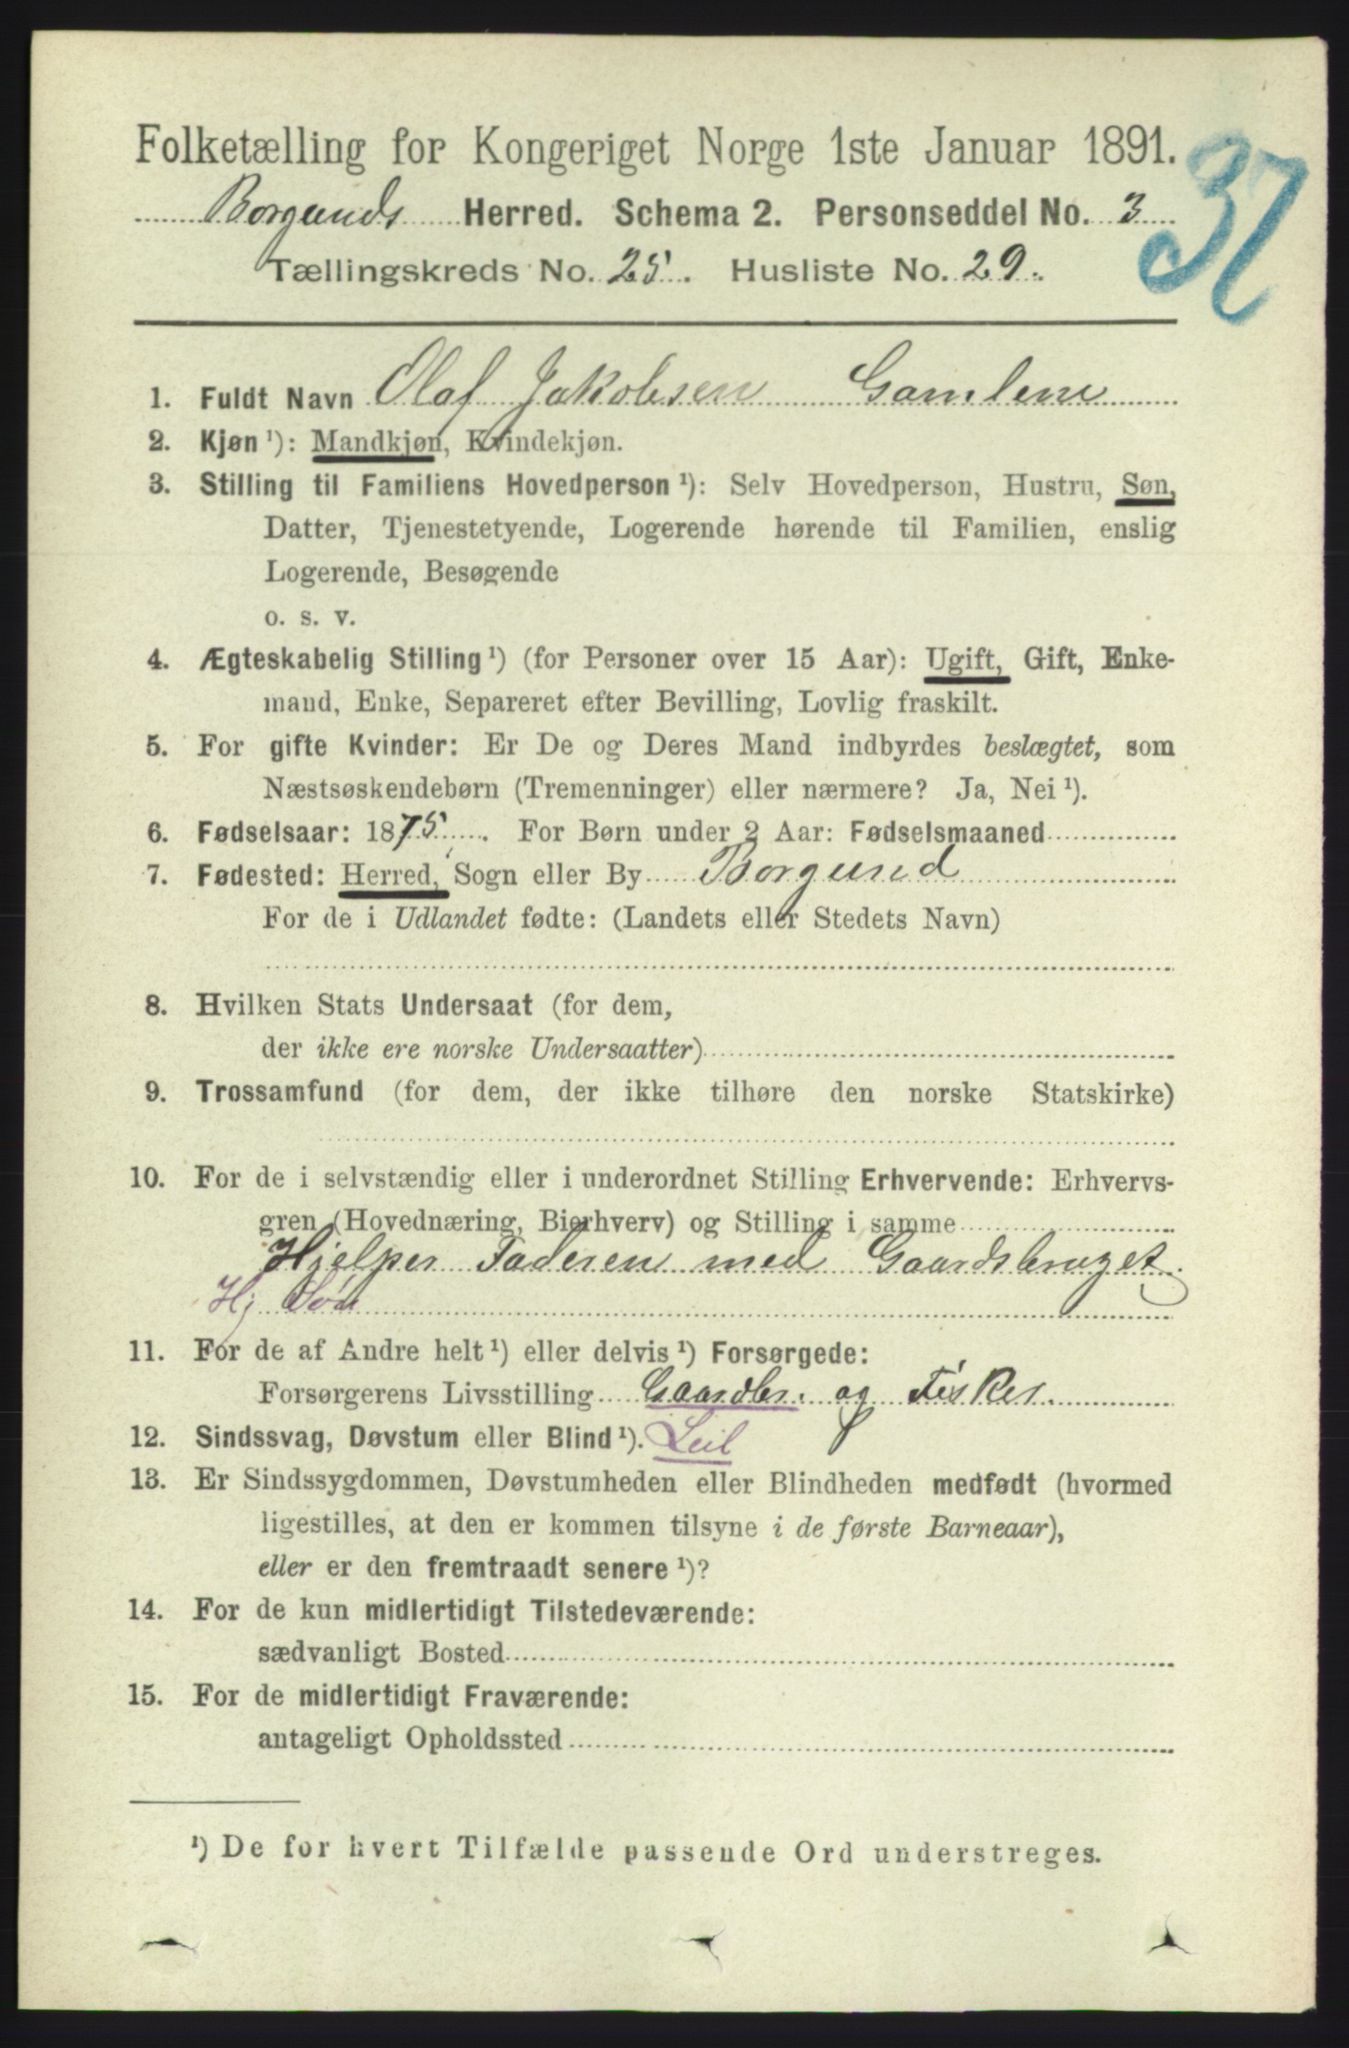 Folketælling for Kongeriget Norge 1ste Januar 1891.
37
Borgunds Herred. Schema 2. Personseddel No. 3
Tællingskreds No. 25. Husliste No. 29.
1. Fuldt Navn Olaf Jakobsen Gamlem
2. Kjøn ¹): Mandkjøn, Kvindekjøn.
3. Stilling til Familiens Hovedperson ¹): Selv Hovedperson, Hustru, Søn,
Datter, Tjenestetyende, Logerende hørende til Familien, enslig
Logerende, Besøgende
o. s. v.
4. Ægteskabelig Stilling ¹) (for Personer over 15 Aar): Ugift, Gift, Enke-
mand, Enke, Separeret efter Bevilling, Lovlig fraskilt.
5. For gifte Kvinder: Er De og Deres Mand indbyrdes beslægtet, som
Næstsøskendebørn (Tremenninger) eller nærmere? Ja, Nei ¹).
6. Fødselsaar: 1875. For Børn under 2 Aar: Fødselsmaaned
7. Fødested: Herred, Sogn eller By Borgund
For de i Udlandet fødte: (Landets eller Stedets Navn)
8. Hvilken Stats Undersaat (for dem,
der ikke ere norske Undersaatter)
9. Trossamfund (for dem, der ikke tilhøre den norske Statskirke)
10. For de i selvstændig eller i underordnet Stilling Erhvervende: Erhvervs-
gren (Hovednæring, Bierhverv) og Stilling i samme
Hjelper Faderen med Gaardsbruget.
Hj Søn
11. For de af Andre helt ¹) eller delvis ¹) Forsørgede:
Forsørgerens Livsstilling Gaardbr. og Fisker.
12. Sindssvag, Døvstum eller Blind ¹). Leil
13. Er Sindssygdommen, Døvstumheden eller Blindheden medfødt (hvormed
ligestilles, at den er kommen tilsyne i de første Barneaar),
eller er den fremtraadt senere ¹)?
14. For de kun midlertidigt Tilstedeværende:
sædvanligt Bosted
15. For de midlertidigt Fraværende:
antageligt Opholdssted
¹) De for hvert Tilfælde passende Ord understreges.